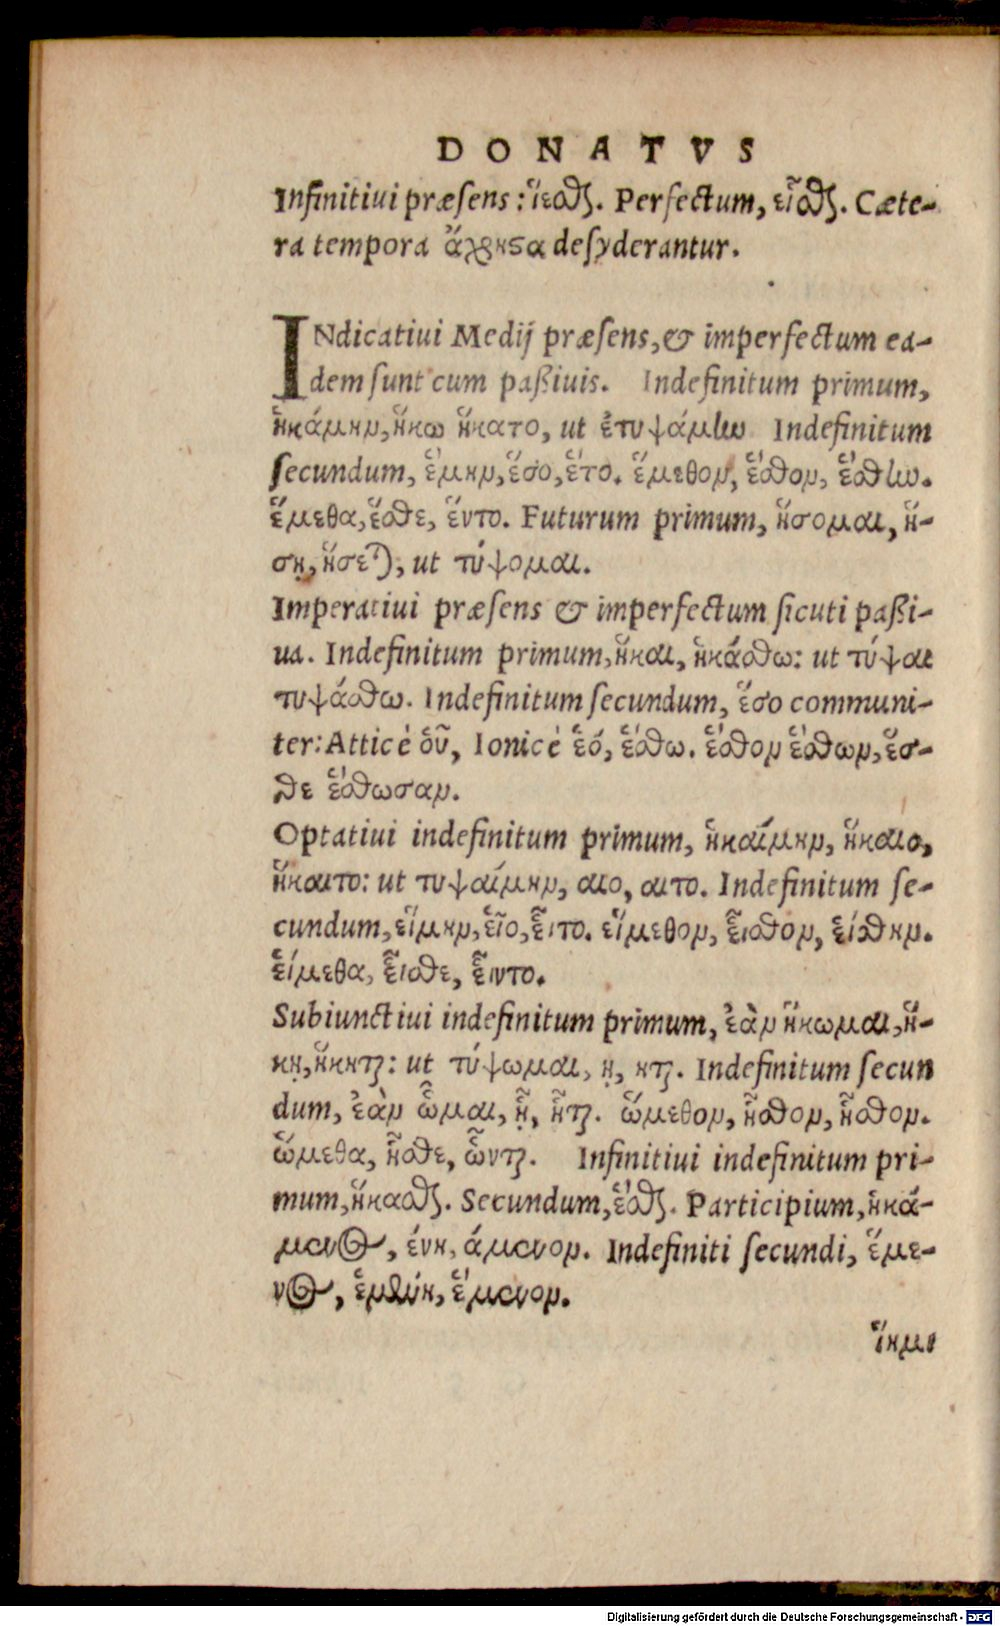 DONATVS
Infinitiui præsens: ἵεσθαι. Perfectum, εἶσθαι. Cæte-
ra tempora ἄχρηστα desyderantur.
INdicatiui Medij præsens, & imperfectum ea-
dem sunt cum paßiuis. Indefinitum primum,
ἡκάμην, ἥκω ἥκατο, ut ἐτυψάμην Indefinitum
secundum, ἕμην, ἕσο, ἕτο. ἕμεθον, ἕσθον, ἕσθην.
ἕμεθα, ἕσθε, ἕντο. Futurum primum, ἥσομαι, ἥ-
σῃ, ἥσεται, ut τύψομαι.
Imperatiui præsens & imperfectum sicuti paßi-
ua. Indefinitum primum, ἧκαι, ἡκάσθω: ut τύψαι
τυψάσθω. Indefinitum secundum, ἕσο communi-
ter: Atticè οὗ, Ionicè ἑό, ἕσθω. ἕσθον ἕσθων, ἕσ-
θε ἕσθωσαν.
Optatiui indefinitum primum, ἡκαίμην, ἥκαιο,
ἥκαιτο: ut τυψαίμην, αιο, αιτο. Indefinitum se-
cundum, εἵμην, εἷο, εἷτο. εἵμεθον, εἷσθον, εἵσθην.
εἵμεθα, εἷσθε, εἷντο.
Subiunctiui indefinitum primum, ἐὰν ἥκωμαι, ἥ-
κῃ, ἥκηται: ut τύψωμαι, ῃ, ηται. Indefinitum secun
dum, ἐὰν ὧμαι, ᾗ, ἧται. ὥμεθον, ἧσθον, ἧσθον.
ὥμεθα, ἧσθε, ὧνται. Infinitiui indefinitum pri-
mum, ἥκασθαι. Secundum, ἕσθαι. Participium, ἡκά-
μενος, ένη, άμενον. Indefiniti secundi, ἕμε-
νος, ἑμένη, ἕμενον.
ἵημι
Digitalisierung gefördert durch die Deutsche Forschungsgemeinschaft - DFG